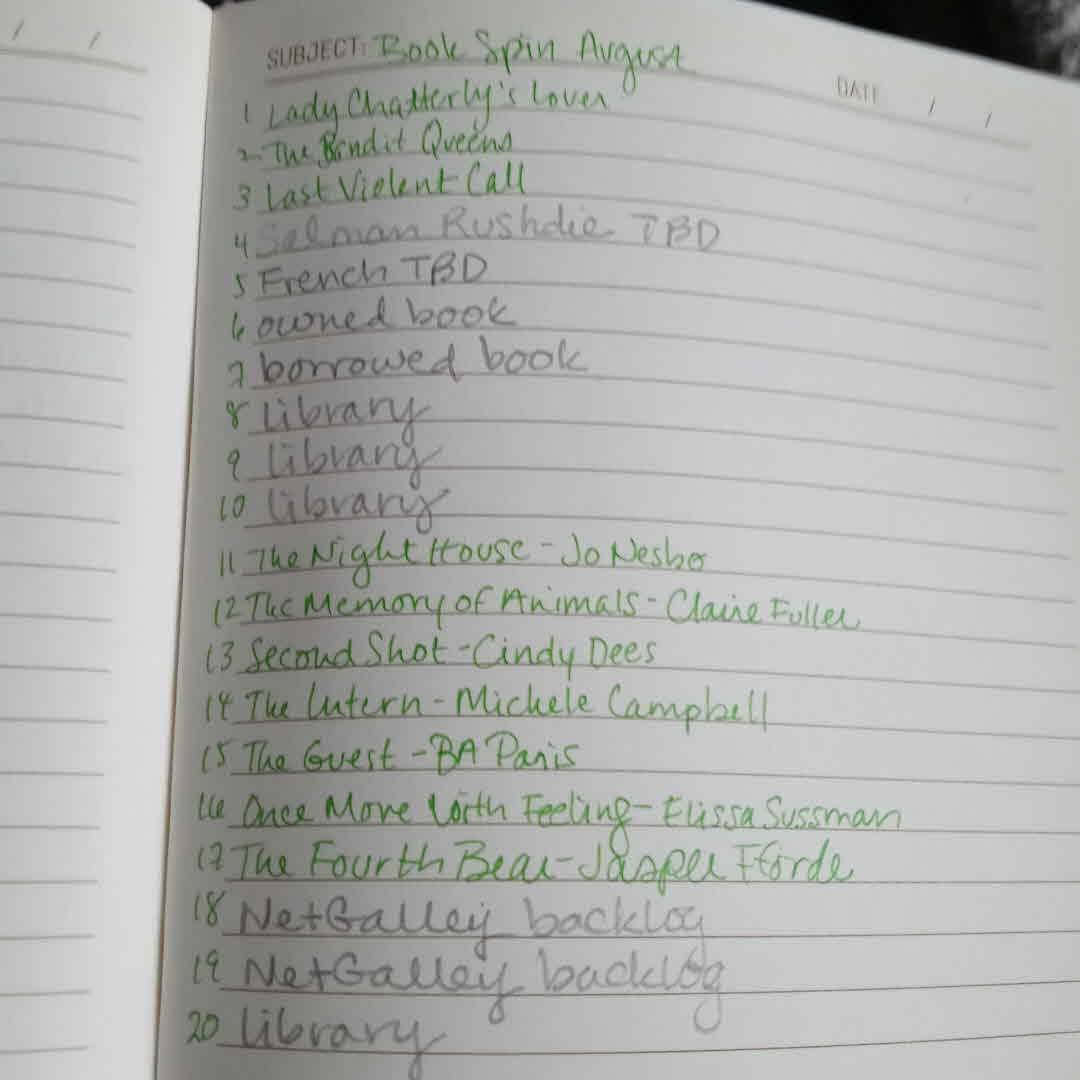 / /
SUBJECT: Book Spin August
DATE / /
1 Lady Chatterly's Lover
2 The Bandit Queens
3 Last Violent Call
4 Salman Rushdie TBD
5 French TBD
6 owned book
7 borrowed book
8 library
9 library
10 library
11 The Night House - Jo Nesbo
12 The Memory of Animals - Claire Fuller
13 Second Shot - Cindy Dees
14 The Intern - Michele Campbell
15 The Guest - BA Paris
16 Once More With Feeling - Elissa Sussman
17 The Fourth Bear - Jasper Fforde
18 NetGalley backlog
19 NetGalley backlog
20 library